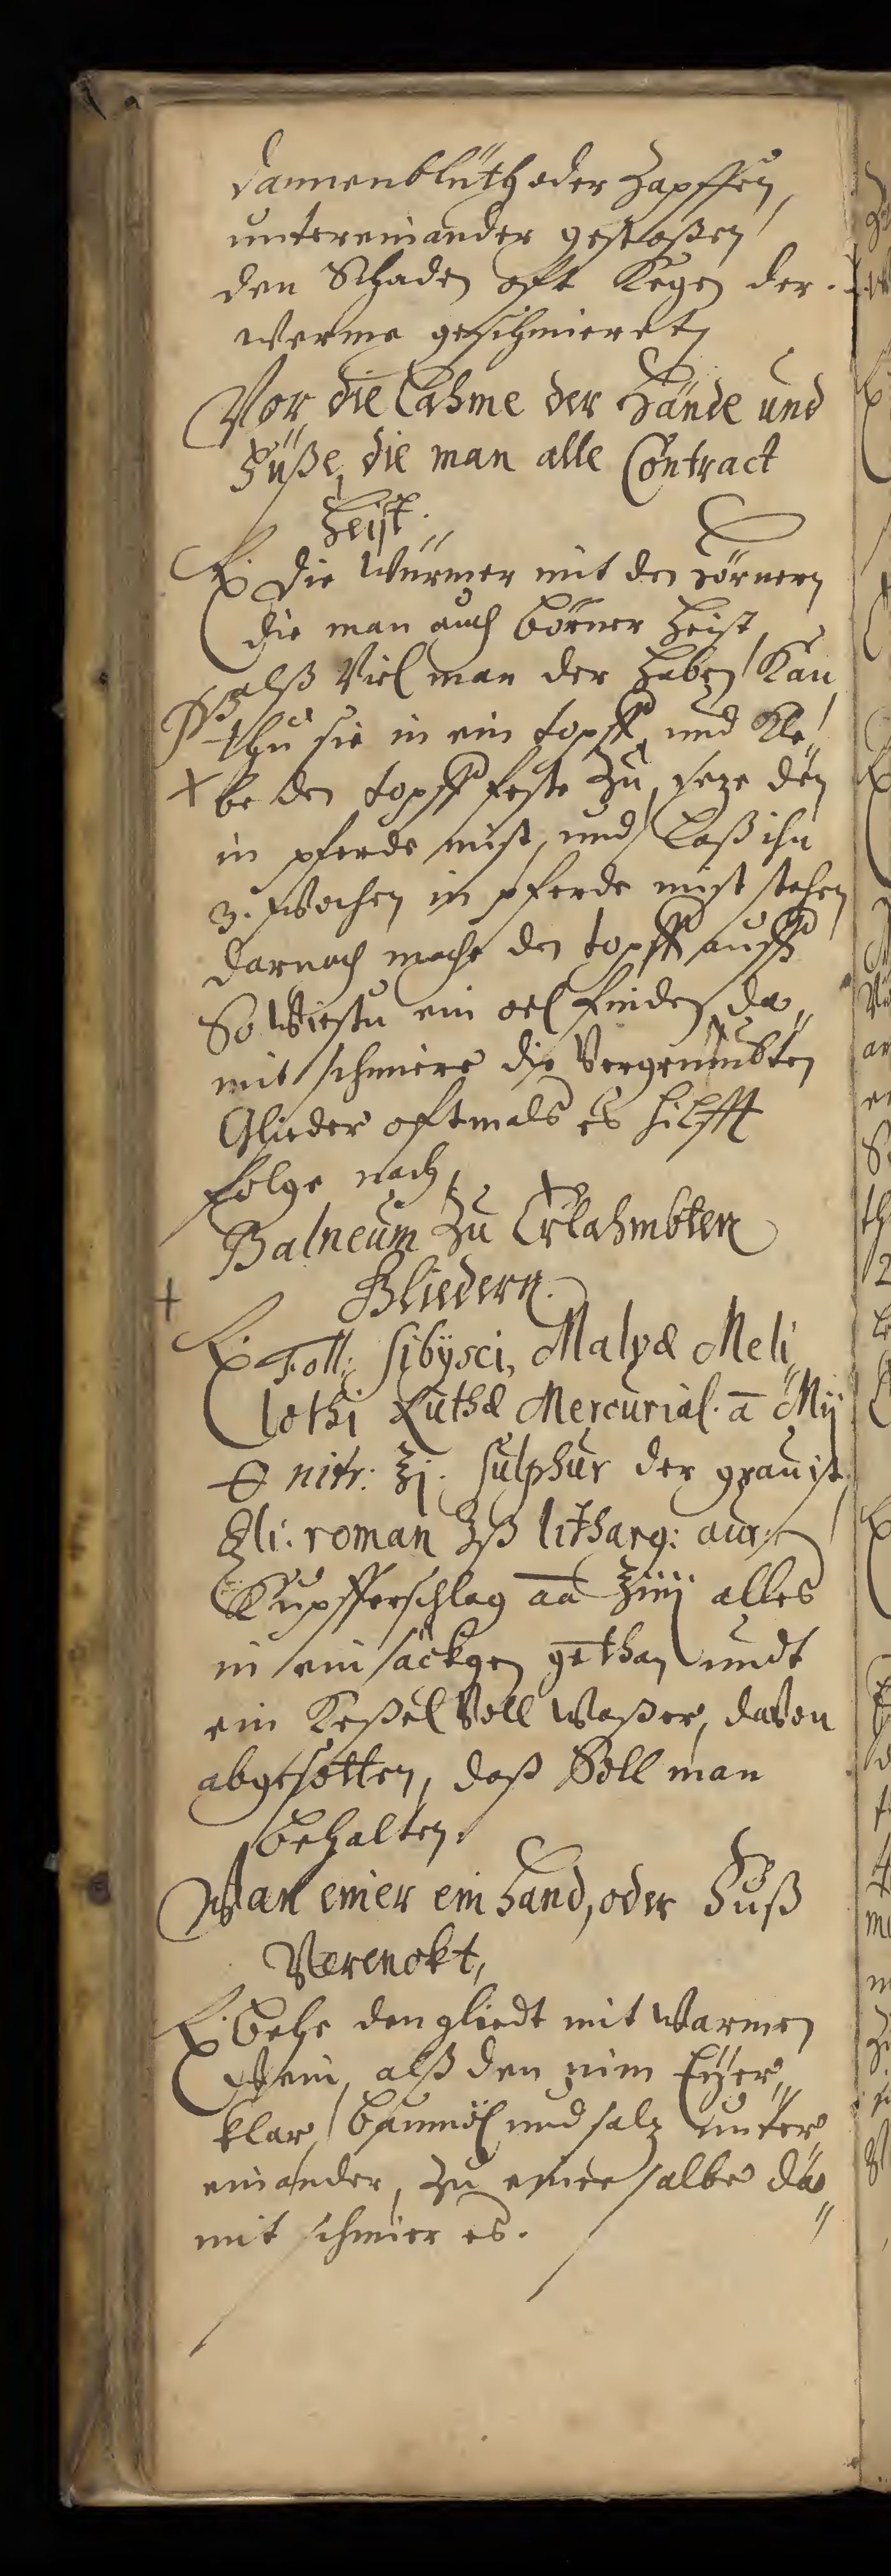 dannenblüth oder Zapffen,
untereinander gestoßen
den Schaden oft Kegen der
werme geschmieret
Vor die Lahme der Hände und
Füße, die man alle Contract
heist.
Rx. Die Würmer mit den Hörnern
die man auch börner heist,
alß Viel man der haben Kan
thu sie in ein topff, und Kle„
be den topff feste Zu, seze den
in pferde mist, und Laß ihn
3. Wochen in pferde mist stehen
darnach mache den topff auff
So Wirstu ein oel finden da„
mit schmiere die
Glieder oftmals es hilfft
folge nach,
Balneum Zu Erlahmbten
Gliedern.
Rx Foll: Malvæ Meli„
lothi Mercurial. a Mij
nitr: ℥j. Sulphur der grau ist
roman ℥ß litharg: aur:
Kupfferschlag aa ℥iiij alles
in ein säckgen gethan undt
ein Keßel Voll Waßer, davon
abgesotten, daß Soll man
behalten.
Wan einer ein Hand, oder Fuß
Verenckt,
Rx behe den gliedt mit Warmen
Wein, alß den nim Eÿer„
klar, baumöl und salz unter„
einander, zu einer salbe da„
mit schmier es.